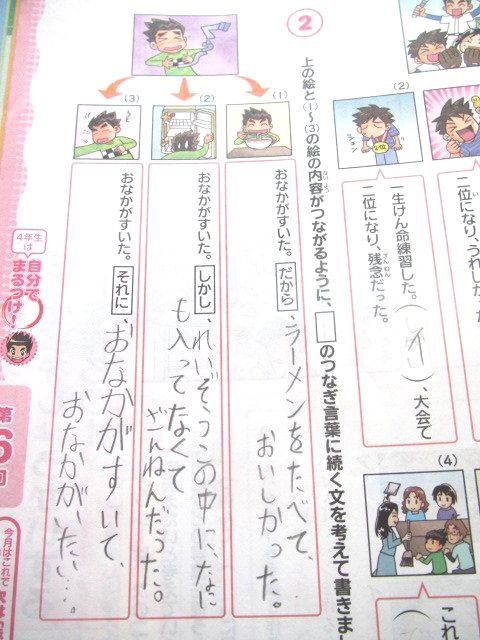 二位になり、うれしかった
(2)
2位
ション
一生けん命練習した。（しかし）、大会で
二位になり、残念だった。
(4)
これ
2
上の絵と(1)～(3)の絵の内容がつながるように、□のつなぎ言葉に続く文を考えて書きま
(1)
おなかがすいた。だから、ラーメンをたべて、
おいしかった。
(2)
おなかがすいた。しかし、れいぞうこの中に、なに
も入ってなくて
ざんねんだった。
(3)
おなかがすいた。それに、おなかがすいて、
おなかがいたい…。
4年生は
自分で
まるつけ！
第
6
回
今月はこれで